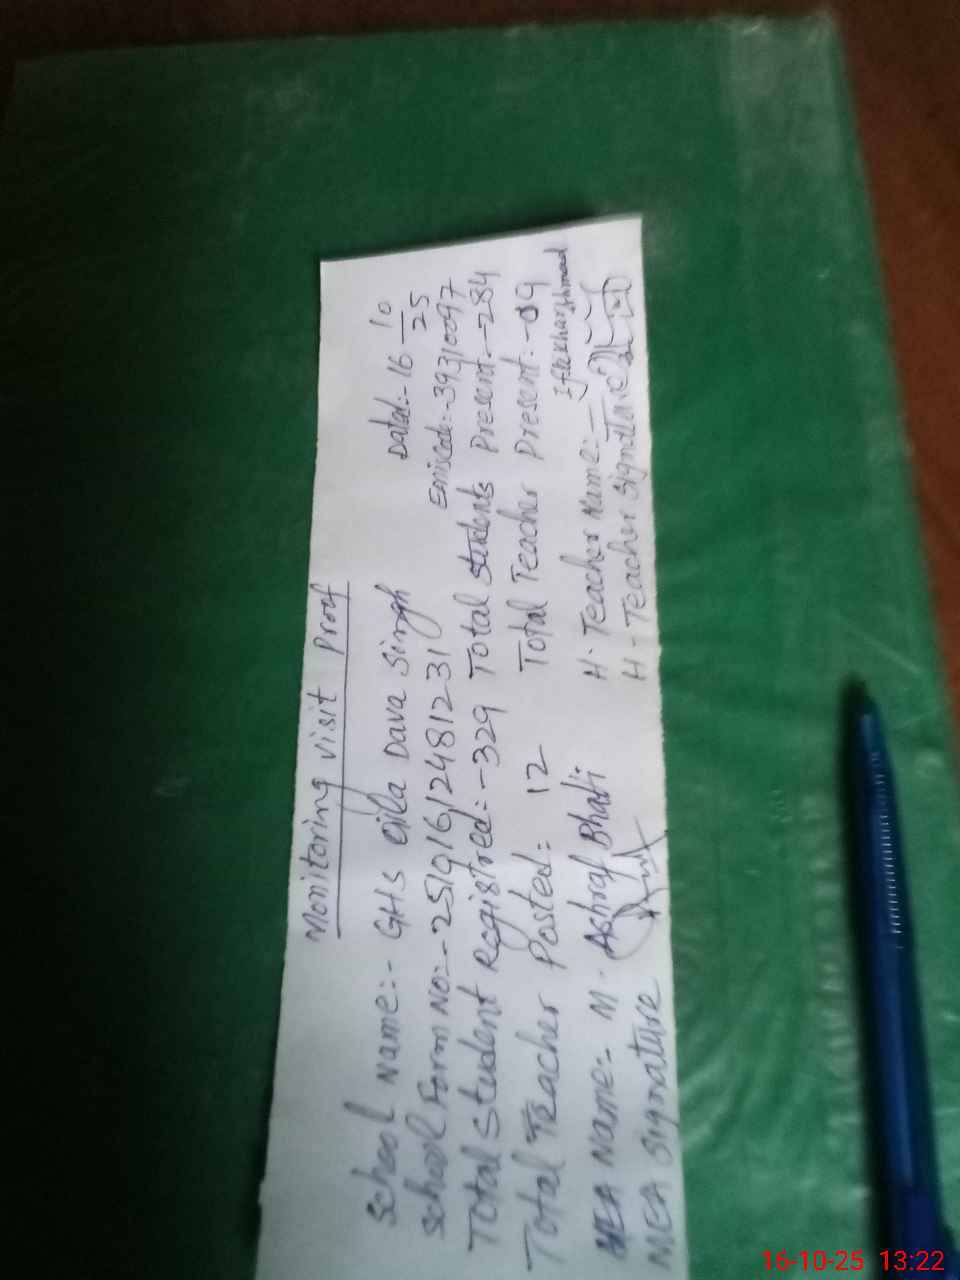 Monitoring visit Proof
School Name:- GHS Gila Dava Singh Dated:- 16-10/25
School Form No:- 2519161248 1231 Emiscode:- 39310097
Total Student Registred:- 329 Total Students Present:- 284
Total Teacher Posted:- 12 Total Teacher Present:- 09
MEA Name:- M. Ashraf Bhatti H. Teacher Name:- Iftekhar Ahmad
MEA Signature H- Teacher Signature
16-10-25 13:22